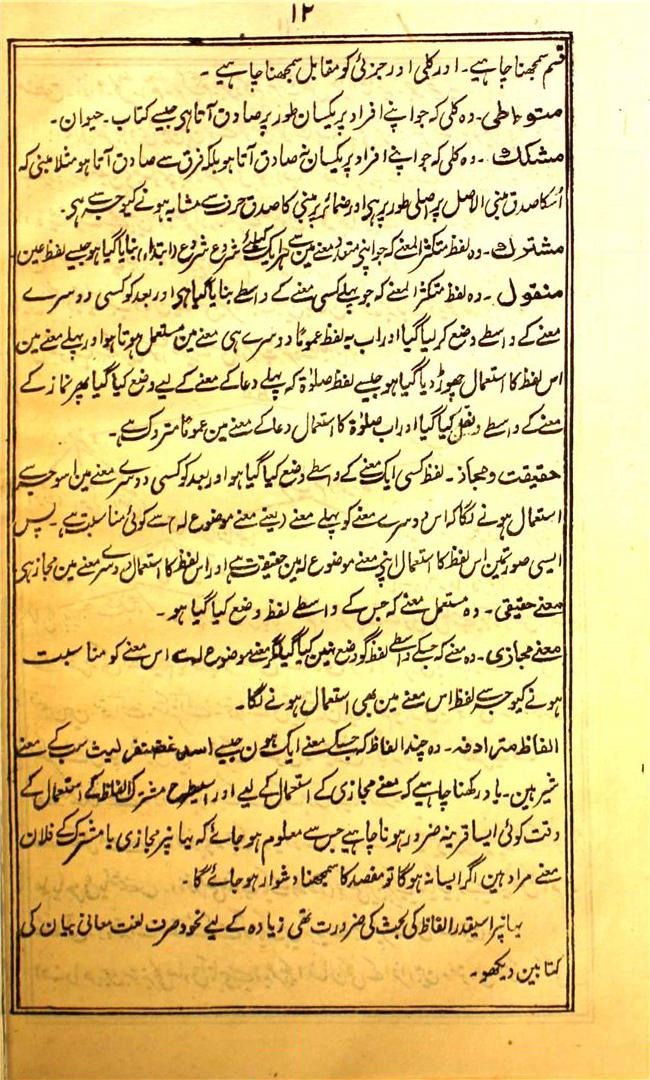 ۱۲
قسم سمجھنا چاہیے۔ اور کلی اور جزئی کو مقابل سمجھنا چاہیے۔
متواطی۔ وہ کلی کہ جو اپنے افراد پر یکسان طور پر صادق آتا ہی جیسے کتاب۔ حیوان۔
مشکک۔ وہ کلی کہ جو اپنے افراد پر یکسان نہ صادق آتا ہو بلکہ فرق سے صادق آتا ہو مثلا مبنی کہ
اُسکا صدق مبنی الاصل پر اصلی طور پر ہی اور ضمائر پر مبنی کا صدق حرف سے مشابہ ہونے کیوجہ سے ہی۔
مشترک۔ وہ لفظ متکثر المعنے کہ جو اپنی متعدد معنے مین سے ہر ایک کیلئے شروع شروع (ابتداء) بنایا گیا ہو جیسے لفظ عین
منقول۔ وہ لفظ متکثر المعنے کہ جو پہلے کسی معنے کے واسطے بنایا گیا ہی اور بعد کو کسی دوسرے
معنے کے واسطے وضع کر لیا گیا اور اب یہ لفظ عمومًا دوسرے ہی معنے مین مستعمل ہوتا ہو اور پہلے معنے مین
اس لفظ کا استعمال چھوڑ دیا گیا ہو جیسے لفظ صلوٰۃ کہ پہلے دعا کے معنے کے لیے وضع کیا گیا پھر نماز کے
معنے کے واسطے نقل کیا گیا اور اب صلوٰۃ کا استعمال دعا کے معنے مین عمومًا متروک ہے۔
حقیقت و مجاز۔ لفظ کسی ایک معنے کے واسطے وضع کیا گیا ہو اور بعد کو کسی دوسرے معنے مین اسوجہ سے
استعمال ہونے لگا کہ اس دوسرے معنے کو پہلے معنے (یعنے معنے موضوع لہ) سے کوئی مناسبت ہے۔ پس
ایسی صورتمین اس لفظ کا استعمال اپنے معنے موضوع لہ مین حقیقت ہے اور اس لفظ کا استعمال دوسرے معنے مین مجاز ہی
معنے حقیقی۔ وہ مستعمل معنے کہ جس کے واسطے لفظ وضع کیا گیا ہو۔
معنے مجازی۔ وہ معنے کہ جسکے واسطے لفظ گو وضع نہین کیا گیا مگر معنے موضوع لہ سے اس معنے کو مناسبت
ہونے کیوجہ سے لفظ اس معنے مین بھی استعمال ہونے لگا۔
الفاظ مترادفہ۔ وہ چند الفاظ کہ جسکے معنے ایک ہون جیسے اسد غضنفر لیث سب کے معنے
شیر ہین۔ یاد رکھنا چاہیے کہ معنے مجازی کے استعمال کے لیے اور اسیطرح مشترک الفاظ کے استعمال کے
وقت کوئی ایسا قرینہ ضرور ہونا چاہیے جس سے معلوم ہو جائے کہ یہانپر مجازی یا مشترک کے فلان
معنے مراد ہین اگر ایسا نہ ہوگا تو مقصد کا سمجھنا دشوار ہو جائے گا۔
یہانپر اسیقدر الفاظ کی بحث کی ضرورت تھی زیادہ کے لیے نحو و صرف لغت معانی بیان کی
کتابین دیکھو۔